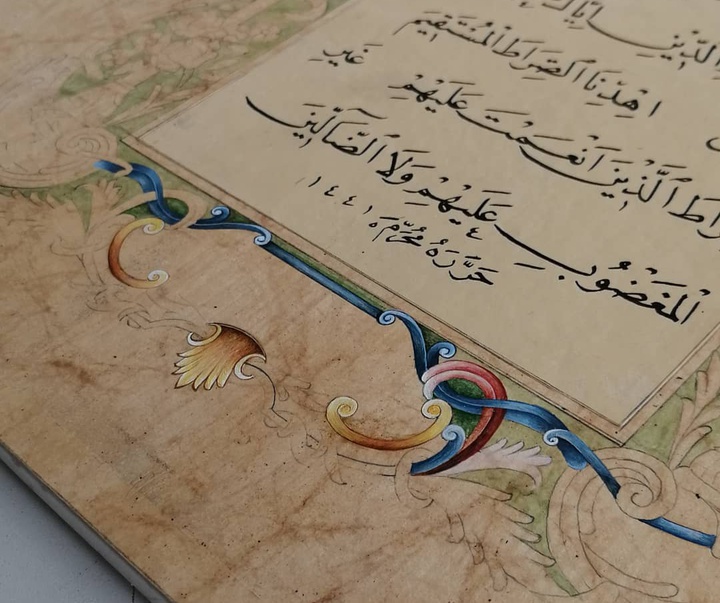 الدِّينِ إِيَّاكَ
اهْدِنَا الصِّرَاطَ الْمُسْتَقِيمَ
رَاطَ الَّذِينَ أَنْعَمْتَ عَلَيْهِمْ غَيْرِ
الْمَغْضُوبِ عَلَيْهِمْ وَلَا الضَّالِّينَ
حَرَّرَهُ مُحَرَّم ١٤٤١